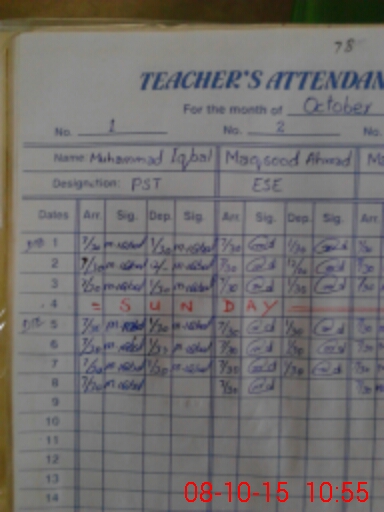 78
TEACHER'S ATTENDAN
For the month of October
No. 1 No. 2 No.
Name Muhammad Iqbal Maqsood Ahmad
Designation: PST ESE
Dates Arr. Sig. Dep. Sig. Arr. Sig. Dep. Sig. Arr.
1 7/30 m.iqbal 1/30 m.iqbal 7/30 1/30 7/30
2 7/30 m.iqbal 12/- m.iqbal 7/30 12/30 7/30
3 7/30 m.iqbal 1/30 m.iqbal 7/30 1/30 7/30
4 = SUNDAY
5 7/30 m.iqbal 1/30 m.iqbal 7/30 1/30 7/30
6 7/30 m.iqbal 1/30 m.iqbal 7/30 1/30 7/30
7 7/30 m.iqbal 1/30 m.iqbal 7/30 1/30 7/30
8 7/30 m.iqbal 7/30 7/30
9
10
11
12
13
14
08-10-15 10:55